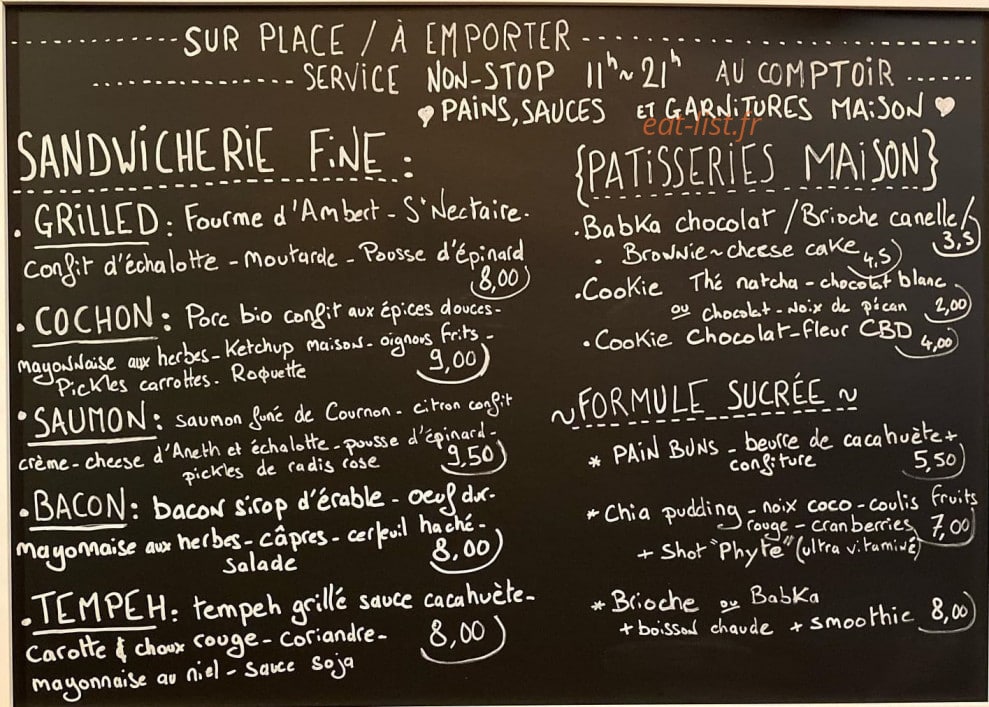 SUR PLACE / À EMPORTER
SERVICE NON-STOP 11h~21h AU COMPTOIR
♥ PAINS, SAUCES ET GARNITURES MAISON ♥
eat-list.fr
SANDWICHERIE FINE :
. GRILLED : Fourme d'Ambert - S'Nectaire -
Confit d'échalotte - Moutarde - Pousse d'épinard
8,00
. COCHON : Porc bio confit aux épices douces -
mayonnaise aux herbes - Ketchup maison - oignons frits -
Pickles carrottes. Roquette
9,00
• SAUMON : saumon fumé de Cournon - citron confit
crème - cheese d'Aneth et échalotte - pousse d'épinard -
pickles de radis rose
9,50
. BACON : bacon sirop d'érable - oeuf dur -
mayonnaise aux herbes - câpres - cerfeuil haché -
Salade
8,00
. TEMPEH : tempeh grillé sauce cacahuète -
Carotte & choux rouge - Coriandre -
mayonnaise au miel - sauce soja
8,00
{PATISSERIES MAISON}
. Babka chocolat / Brioche canelle /
3,5
. Brownie ~ cheese cake
4,5
. Cookie Thé matcha - chocolat blanc
ou chocolat - Noix de pécan
2,00
. Cookie Chocolat - fleur CBD
4,00
~ FORMULE SUCRÉE ~
* PAIN BUNS - beurre de cacahuète +
confiture
5,50
* Chia pudding - noix coco - coulis fruits
rouge - cranberries
7,00
+ Shot "Phyte" (ultra vitaminé)
* Brioche ou Babka
+ boisson chaude + smoothie
8,00